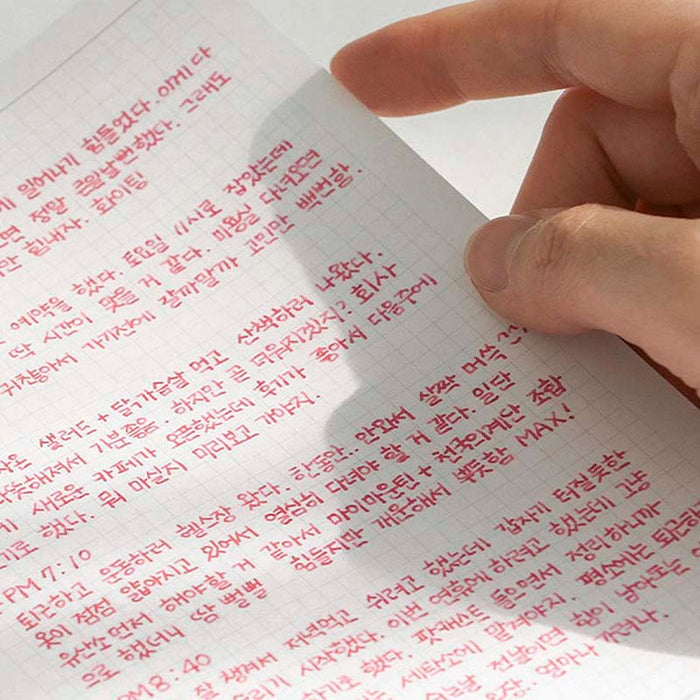 게 일어나기 힘들었다. 이게 다
면 정말 큰일날뻔했다. 그래도
만 힘내자. 화이팅
예약을 했다. 토요일 11시로 잡았는데
딱 시간이 맞을 거 같다. 미용실 다녀오면
귀찮아서 가기전에 갈까말까 고민만 백번함.
샐러드 + 닭가슴살 먹고 산책하러 나왔다.
따뜻해져서 기분좋음. 하지만 곧 더워지겠지? 회사
에 새로운 카페가 오픈했는데 후기가 좋아서 다음주에
기로 했다. 뭐 마실지 미리보고 가야지.
PM 7:10
퇴근하고 운동하러 헬스장 왔다. 한동안.. 안와서 살짝 머쓱
옷이 점점 얇아지고 있어서 열심히 다녀야 할 거 같다. 일단
유산소 먼저 해야할 거 같아서 마이마운틴 + 천국의계단 조합
으로 했더니 땀 뻘뻘 힘들지만 개운해서 뿌듯함 MAX!
PM 8:40
잘 챙겨서 저녁먹고 쉬려고 했는데 갑자기 터질듯한
시작했다. 이번 연휴에 하려고 했는데 그냥
하기로 했다. 팟캐스트 들으면서 정리하니까
세탁소에 맡겨야지. 평소에는 퇴근
전날이면 힘이 남아도는
얼마나